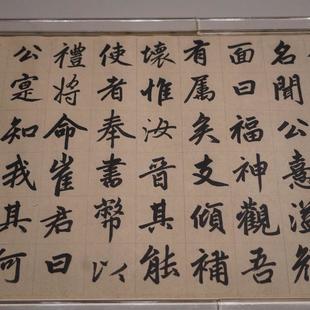 名聞公憙溢
面曰福神觀吾
有属矣支傾補
壞惟汝晉其能
使者奉書幣以
禮將命崔君曰
公寔知我其何